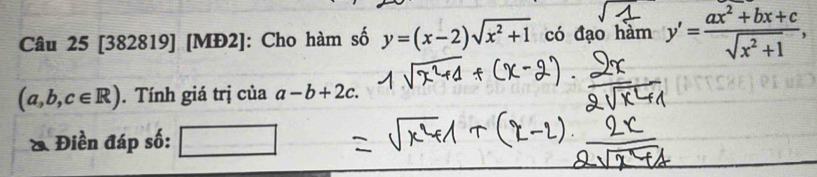 Câu 25 [382819] [MĐ2]: Cho hàm số y = (x − 2)√(x² + 1) có đạo hàm y' = (ax² + bx + c)/√(x² + 1),
(a, b, c ∈ ℝ). Tính giá trị của a − b + 2c.
1√(x²+1) + (x−2) · 2x/(2√(x²+1))
Điền đáp số:
= √(x²+1) + (x−2) · 2x/(2√(x²+1))